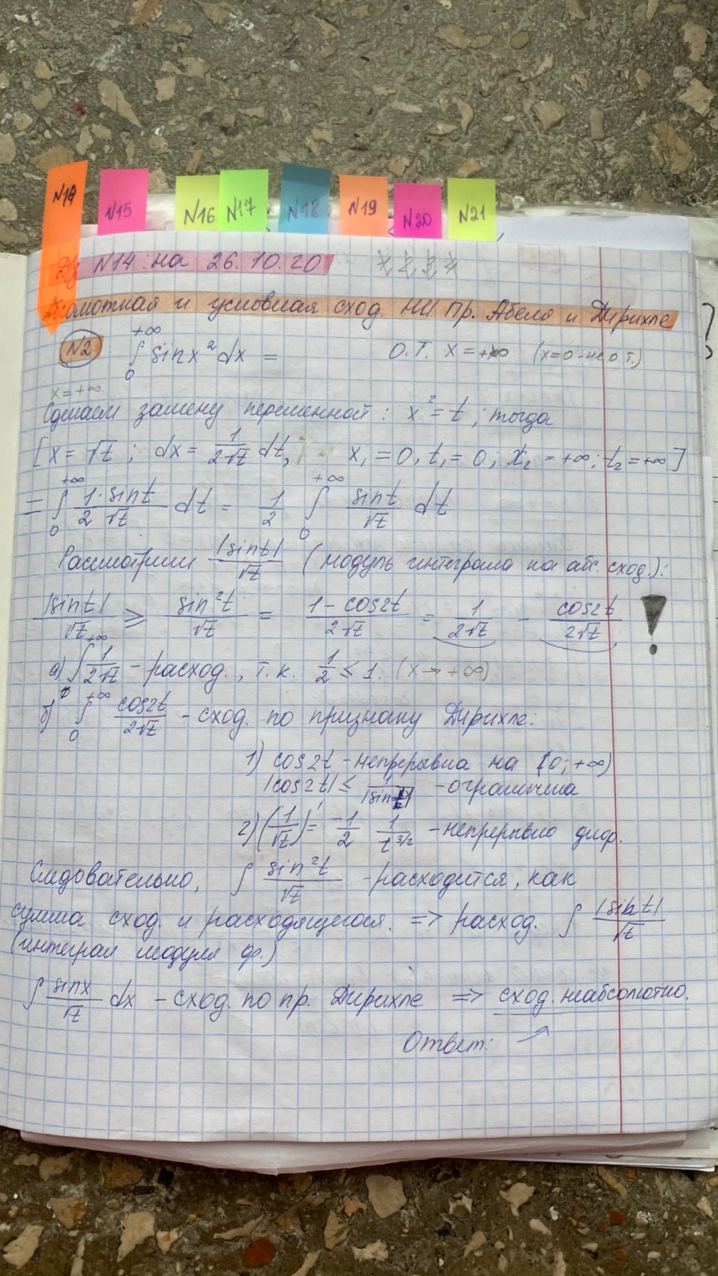 N14
N15
N16
N17
N18
N19
N20
N21
Дз N14: на 26.10.20
Абсолютная и условная сход. НИ пр. Абеля и Дирихле
N2 ∫₀^{+∞} sin x² dx = О.Т. x = +∞ (x=0 - не о.т.)
x=+∞
Сделаем замену переменной: x² = t; тогда
[x = √t; dx = 1/(2√t) dt, x₁ = 0, t₁ = 0; x₂ = +∞; t₂ = +∞]
= ∫₀^{+∞} (1·sin t)/(2 √t) dt = 1/2 ∫₀^{+∞} sin t/√t dt
Рассмотрим |sin t|/√t (модуль интеграла на абс. сход.):
|sin t|/√t ≥ sin² t/√t = (1 - cos2t)/(2√t) = 1/(2√t) - cos2t/(2√t) !
а) ∫₀^{+∞} 1/(2√t) - расход., т.к. 1/2 ≤ 1. (x → +∞)
б) ∫₀^{+∞} cos2t/(2√t) - сход. по признаку Дирихле:
1) cos2t - непрерывна на (0; +∞)
|cos2t| ≤ - ограничена
2) (1/√t)' = -1/2 1/t^{3/2} - непрерывно диф.
Следовательно, ∫ sin² t/√t - расходится, как
сумма сход. и расходящегося. => расход. ∫ |sin t|/√t
(интеграл модуля ф.)
∫ sin x/√t dx - сход. по пр. Дирихле => сход. неабсолютно.
Ответ: ↗